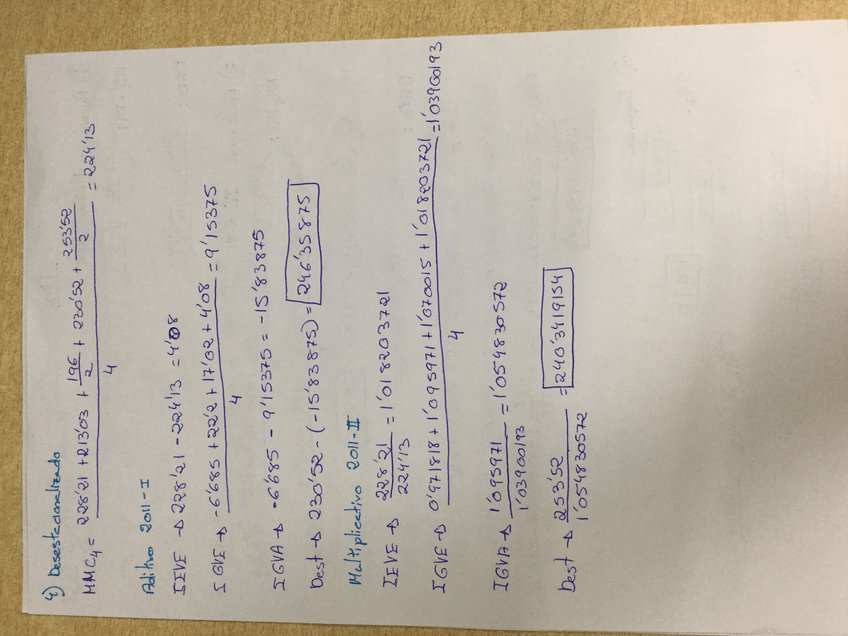 4) Desestacionalizado
MMC₄ = (228'21 + 213'03 + 196/2 + 230'52 + 253'52/2) / 4 = 224'13
Aditivo 2011-I
IEVE → 228'21 - 224'13 = 4'08
IGVE → (-6'685 + 22'2 + 17'02 + 4'08) / 4 = 9'15375
IGVA → -6'685 - 9'15375 = -15'83875
Dest → 230'52 - (-15'83875) = 246'35875
Multiplicativo 2011-II
IEVE → 228'21 / 224'13 = 1'018203721
IGVE → (0'971818 + 1'095971 + 1'070015 + 1'018203721) / 4 = 1'03900193
IGVA → 1'095971 / 1'03900193 = 1'054830572
Dest → 253'52 / 1'054830572 = 240'3419154